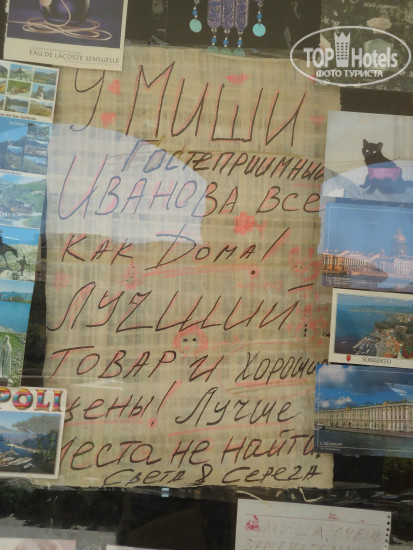 EAU DE LACOSTE SENSUELLE
TOPHotels
ФОТО ТУРИСТА
У МИШИ
ГОСТЕПРИИМНЫЙ
ИВАНОВА ВСЕ
КАК ДОМА!
ЛУЧШИЙ
ТОВАР И ХОРОШИ
ЦЕНЫ! ЛУЧШЕ
МЕСТА НЕ НАЙТИ.
СВЕТА & СЕРЕГА
SORRENTO
POLI